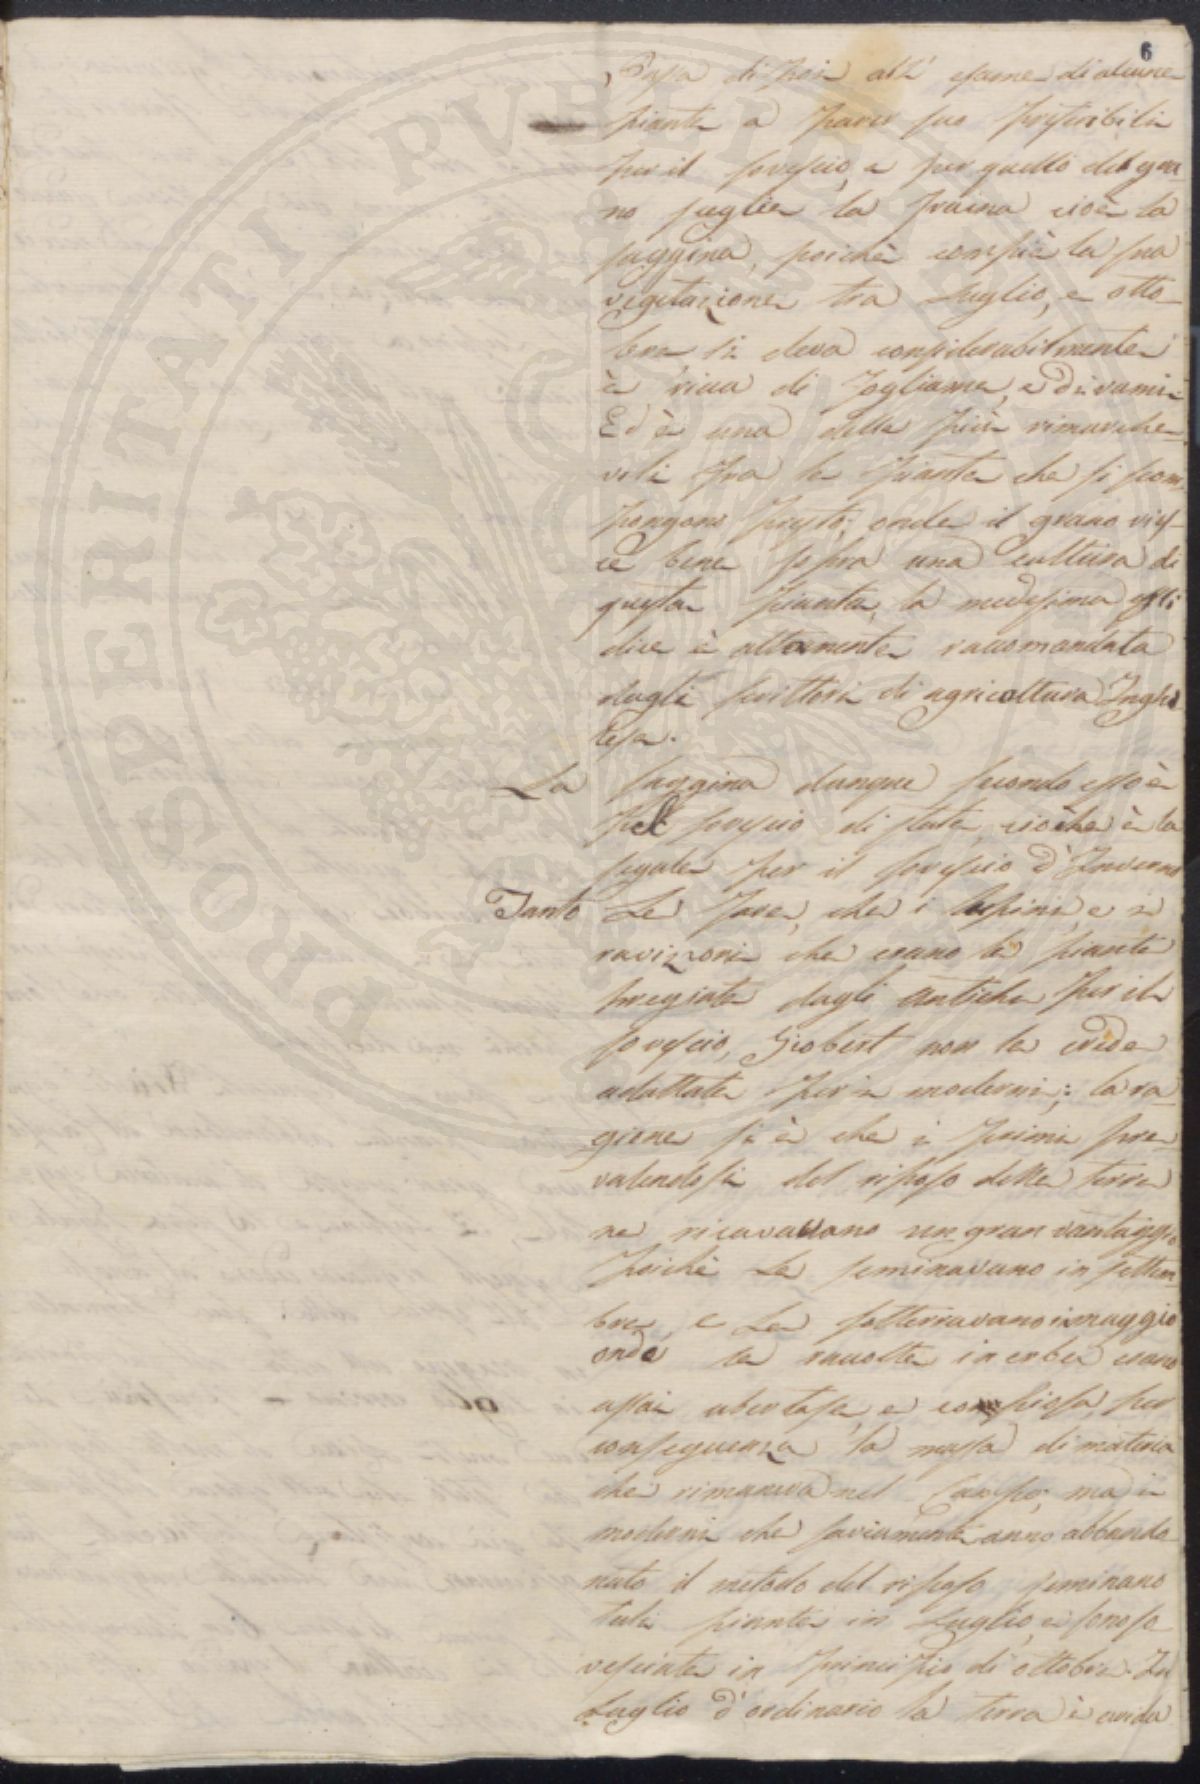 6
Passa di poi all' esame di alcune
piante a parer suo preferibili
per il sovescio, e per quello del gra
no sceglie la fraina cioè la
saggina, poichè compie la sua
vegetazione tra Luglio, e otto
bre si leva considerabilmente
è ricca di fogliame, e di rami
Ed è una delle più rimarche
voli fra le piante che si scom
pongono presto; onde il grano ries
ce bene sopra una cultura di
questa pianta, la medesima egli
dice è altamente raccomandata
dagli scrittori di agricoltura Ingle
sesa.
La saggina dunque secondo esso è
pel sovescio di state, ciochè è la
segale per il sovescio d'Inverno
Tanto Le fave, che i lupini, e i
ravizzoni che erano le piante
pregiate dagli antichi per il
sovescio, Giobert non le crede
adattate per i moderni; la ra
gione si è che i primi pre
valendosi del riposo delle terre
ne ricavavano un gran vantaggio
poichè Le seminavano in settem
bre, e Le sotterravano in maggio
onde la raccolta in erba erano
assai ubertosa, e copiosa per
conseguenza la massa di materia
che rimaneva nel Campo; ma i
moderni che saviamente anno abbando
nato il metodo del riposo seminano
tali piante in Luglio, e sono so
vesciate in principio di ottobre. In
Luglio d'ordinario la terra è arida
PROSPERITATI PUBLICAE